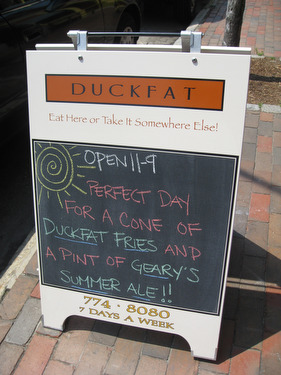 DUCKFAT
Eat Here or Take It Somewhere Else!
OPEN 11-9
PERFECT DAY
FOR A CONE OF
DUCKFAT FRIES AND
A PINT OF GEARY'S
SUMMER ALE!!
774·8080
7 DAYS A WEEK